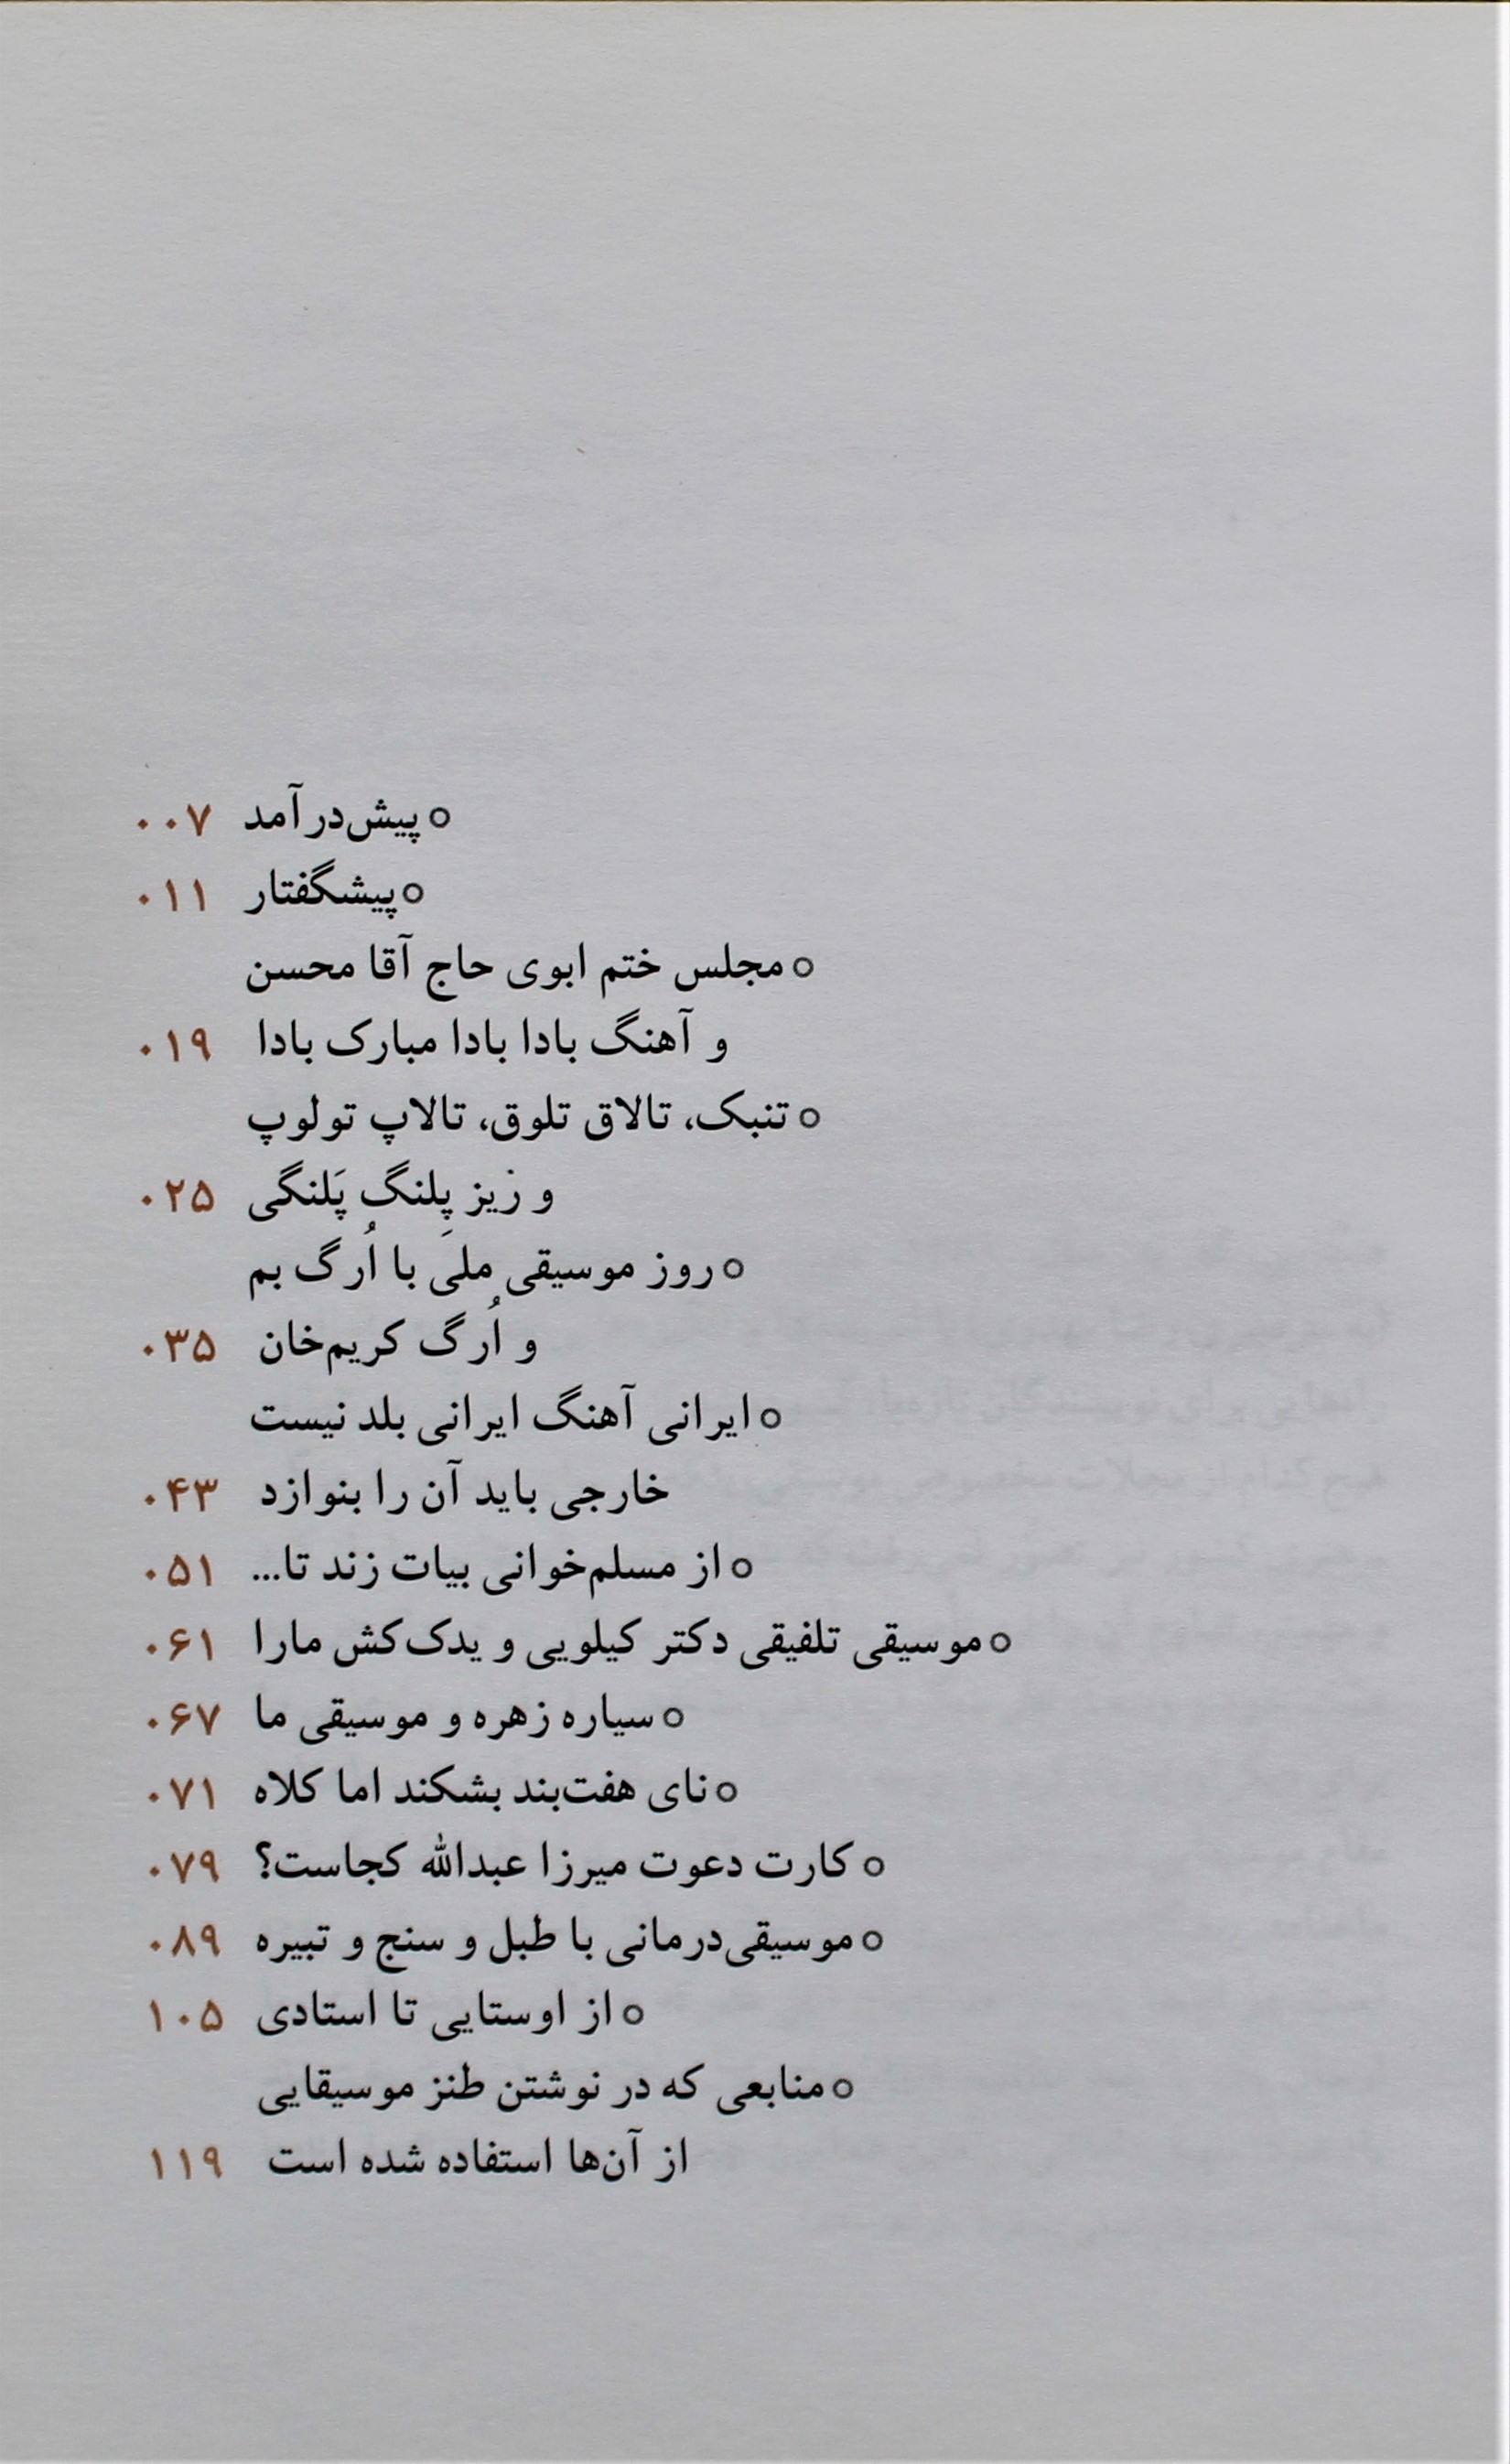 ○ پیش‌درآمد ۰۰۷
○ پیشگفتار ۰۱۱
○ مجلس ختم ابوی حاج آقا محسن
و آهنگ بادا بادا مبارک بادا ۰۱۹
○ تنبک، تالاق تلوق، تالاپ تولوپ
و ریز پِلنگ پَلنگی ۰۲۵
○ روز موسیقی ملی با اُرگ بم
و اُرگ کریم‌خان ۰۳۵
○ ایرانی آهنگ ایرانی بلد نیست
خارجی باید آن را بنوازد ۰۴۳
○ از مسلم‌خوانی بیات زند تا... ۰۵۱
○ موسیقی تلفیقی دکتر کیلویی و یدک‌کش مارا ۰۶۱
○ سیاره زهره و موسیقی ما ۰۶۷
○ نای هفت‌بند بشکند اما کلاه ۰۷۱
○ کارت دعوت میرزا عبدالله کجاست؟ ۰۷۹
○ موسیقی‌درمانی با طبل و سنج و تبیره ۰۸۹
○ از اوستایی تا استادی ۱۰۵
○ منابعی که در نوشتن طنز موسیقایی
از آن‌ها استفاده شده است ۱۱۹